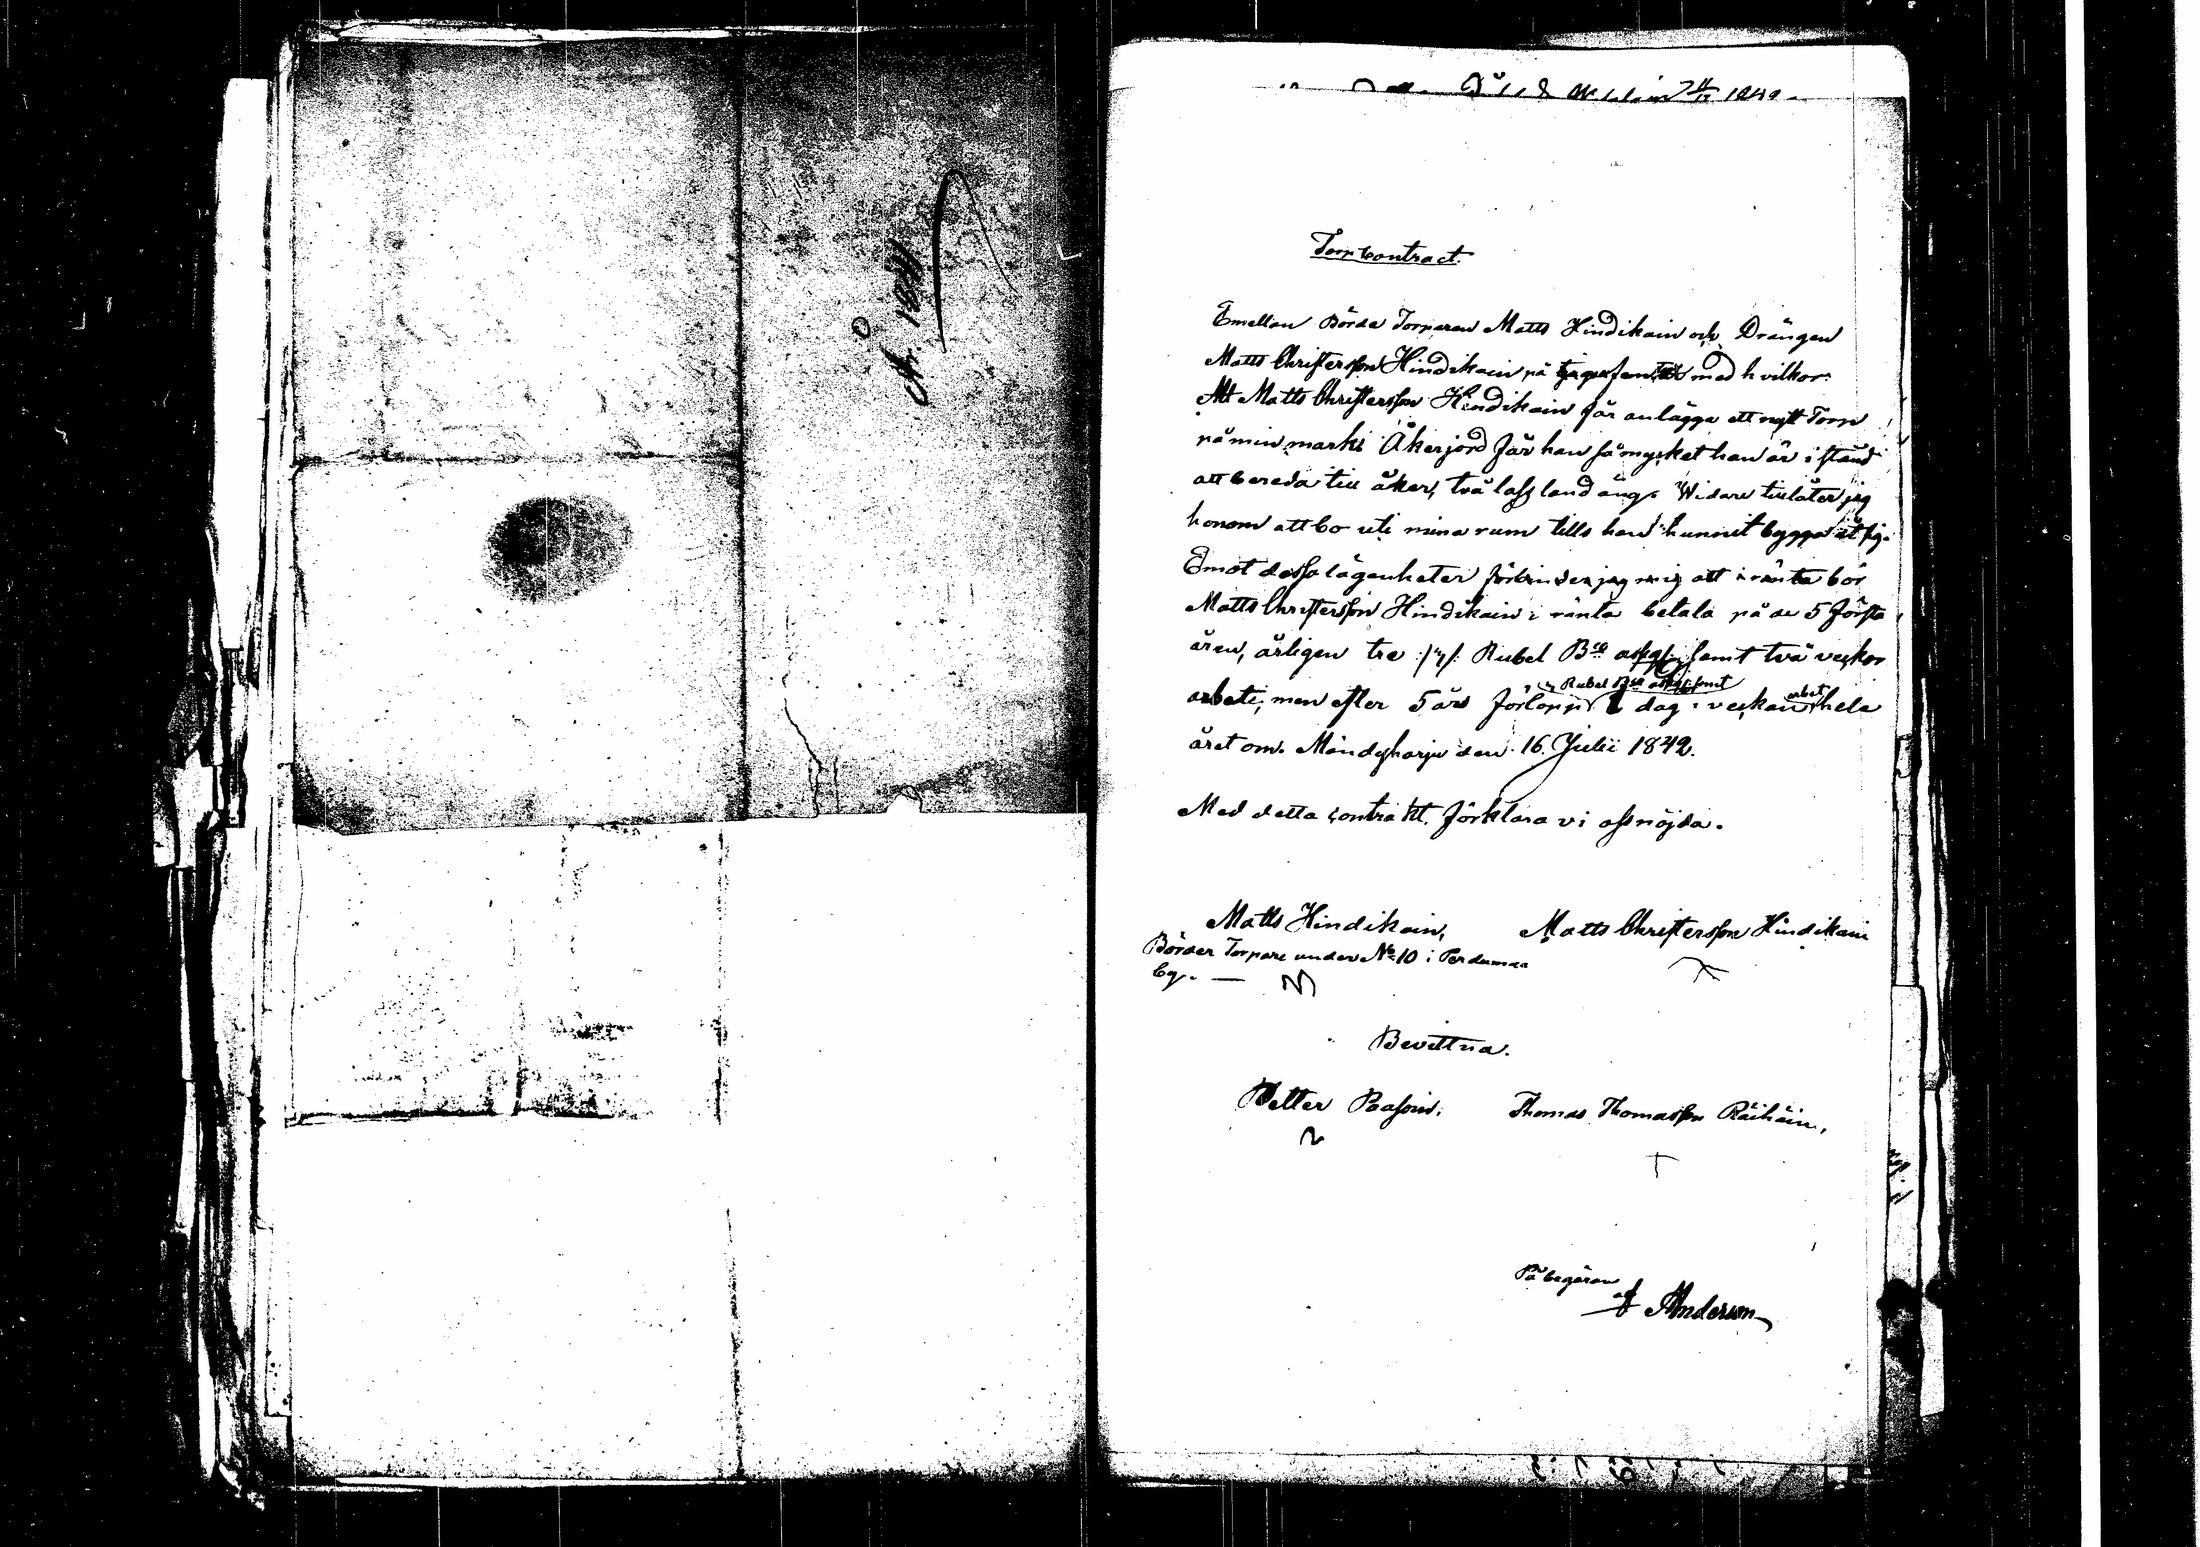 År 1841
Torp Contract.
Emellan Börde Torparen Matts Hindikain och Drängen
Matts Christersson Hindikain på med hvilkor.
Att Matts Christersson Hindikain får anlägga ett nytt Torp
på min mark: Åkerjord får han så mycket han är i stånd
att bereda till åker, två lass land äng. Widare tillåter jag
honom att bo uti mina rum tills han hunnit bygga åt sig.
Emot dessa lägenheter förbinder jag mig att i ränta bör
Matts Christersson Hindikain i ränta betala på de 5 första
åren, årligen tre /3/ Rubel Bco assg: samt två veckor
arbete, men efter 5 års förlopp 3 Rubel Bco assg: samt 1 dag i veckan arbet hela
året om. Mändyharju den 16. Julii 1842.
Med detta contrakt förklara vi oss nöjda.
Matts Hindikain, Matts Christersson Hindikain
Börder Torpare under No 10 i
by. —
Bevittna.
Petter Thomas Thomasson Räihäin,
På begäran
af Anderson